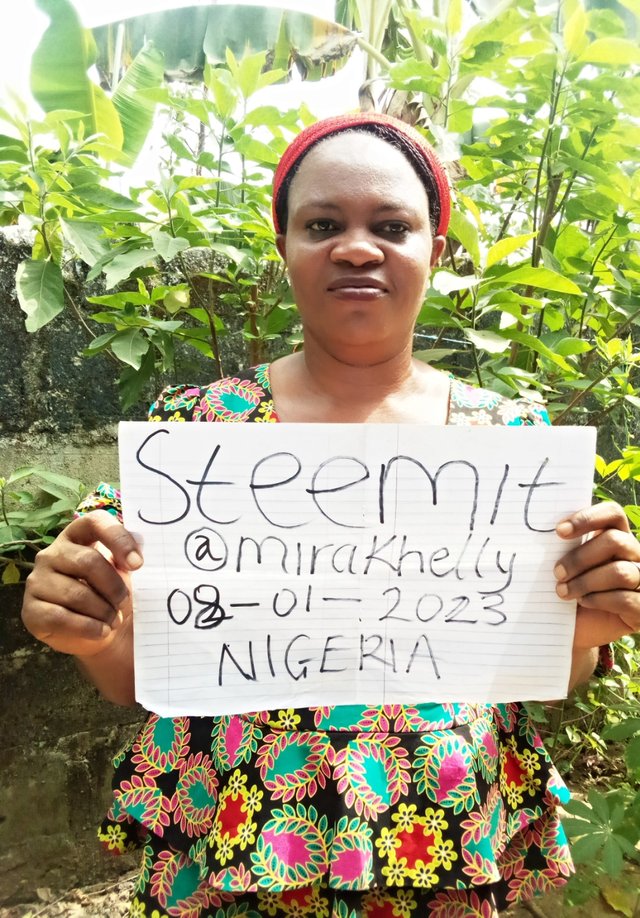 Steemit
@mirakhelly
08-01-2023
NIGERIA